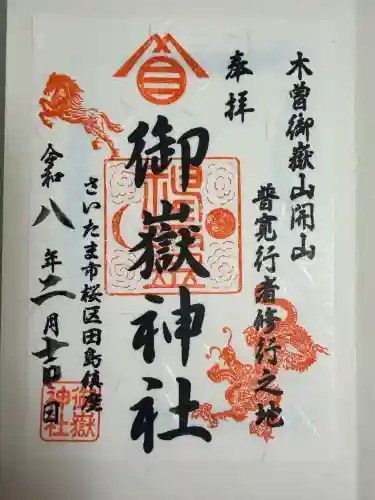 木曽御嶽山開山
普寛行者修行之地
奉拝
御嶽神社
さいたま市桜区田島鎮座
令和八年二月十四日
御嶽
神社